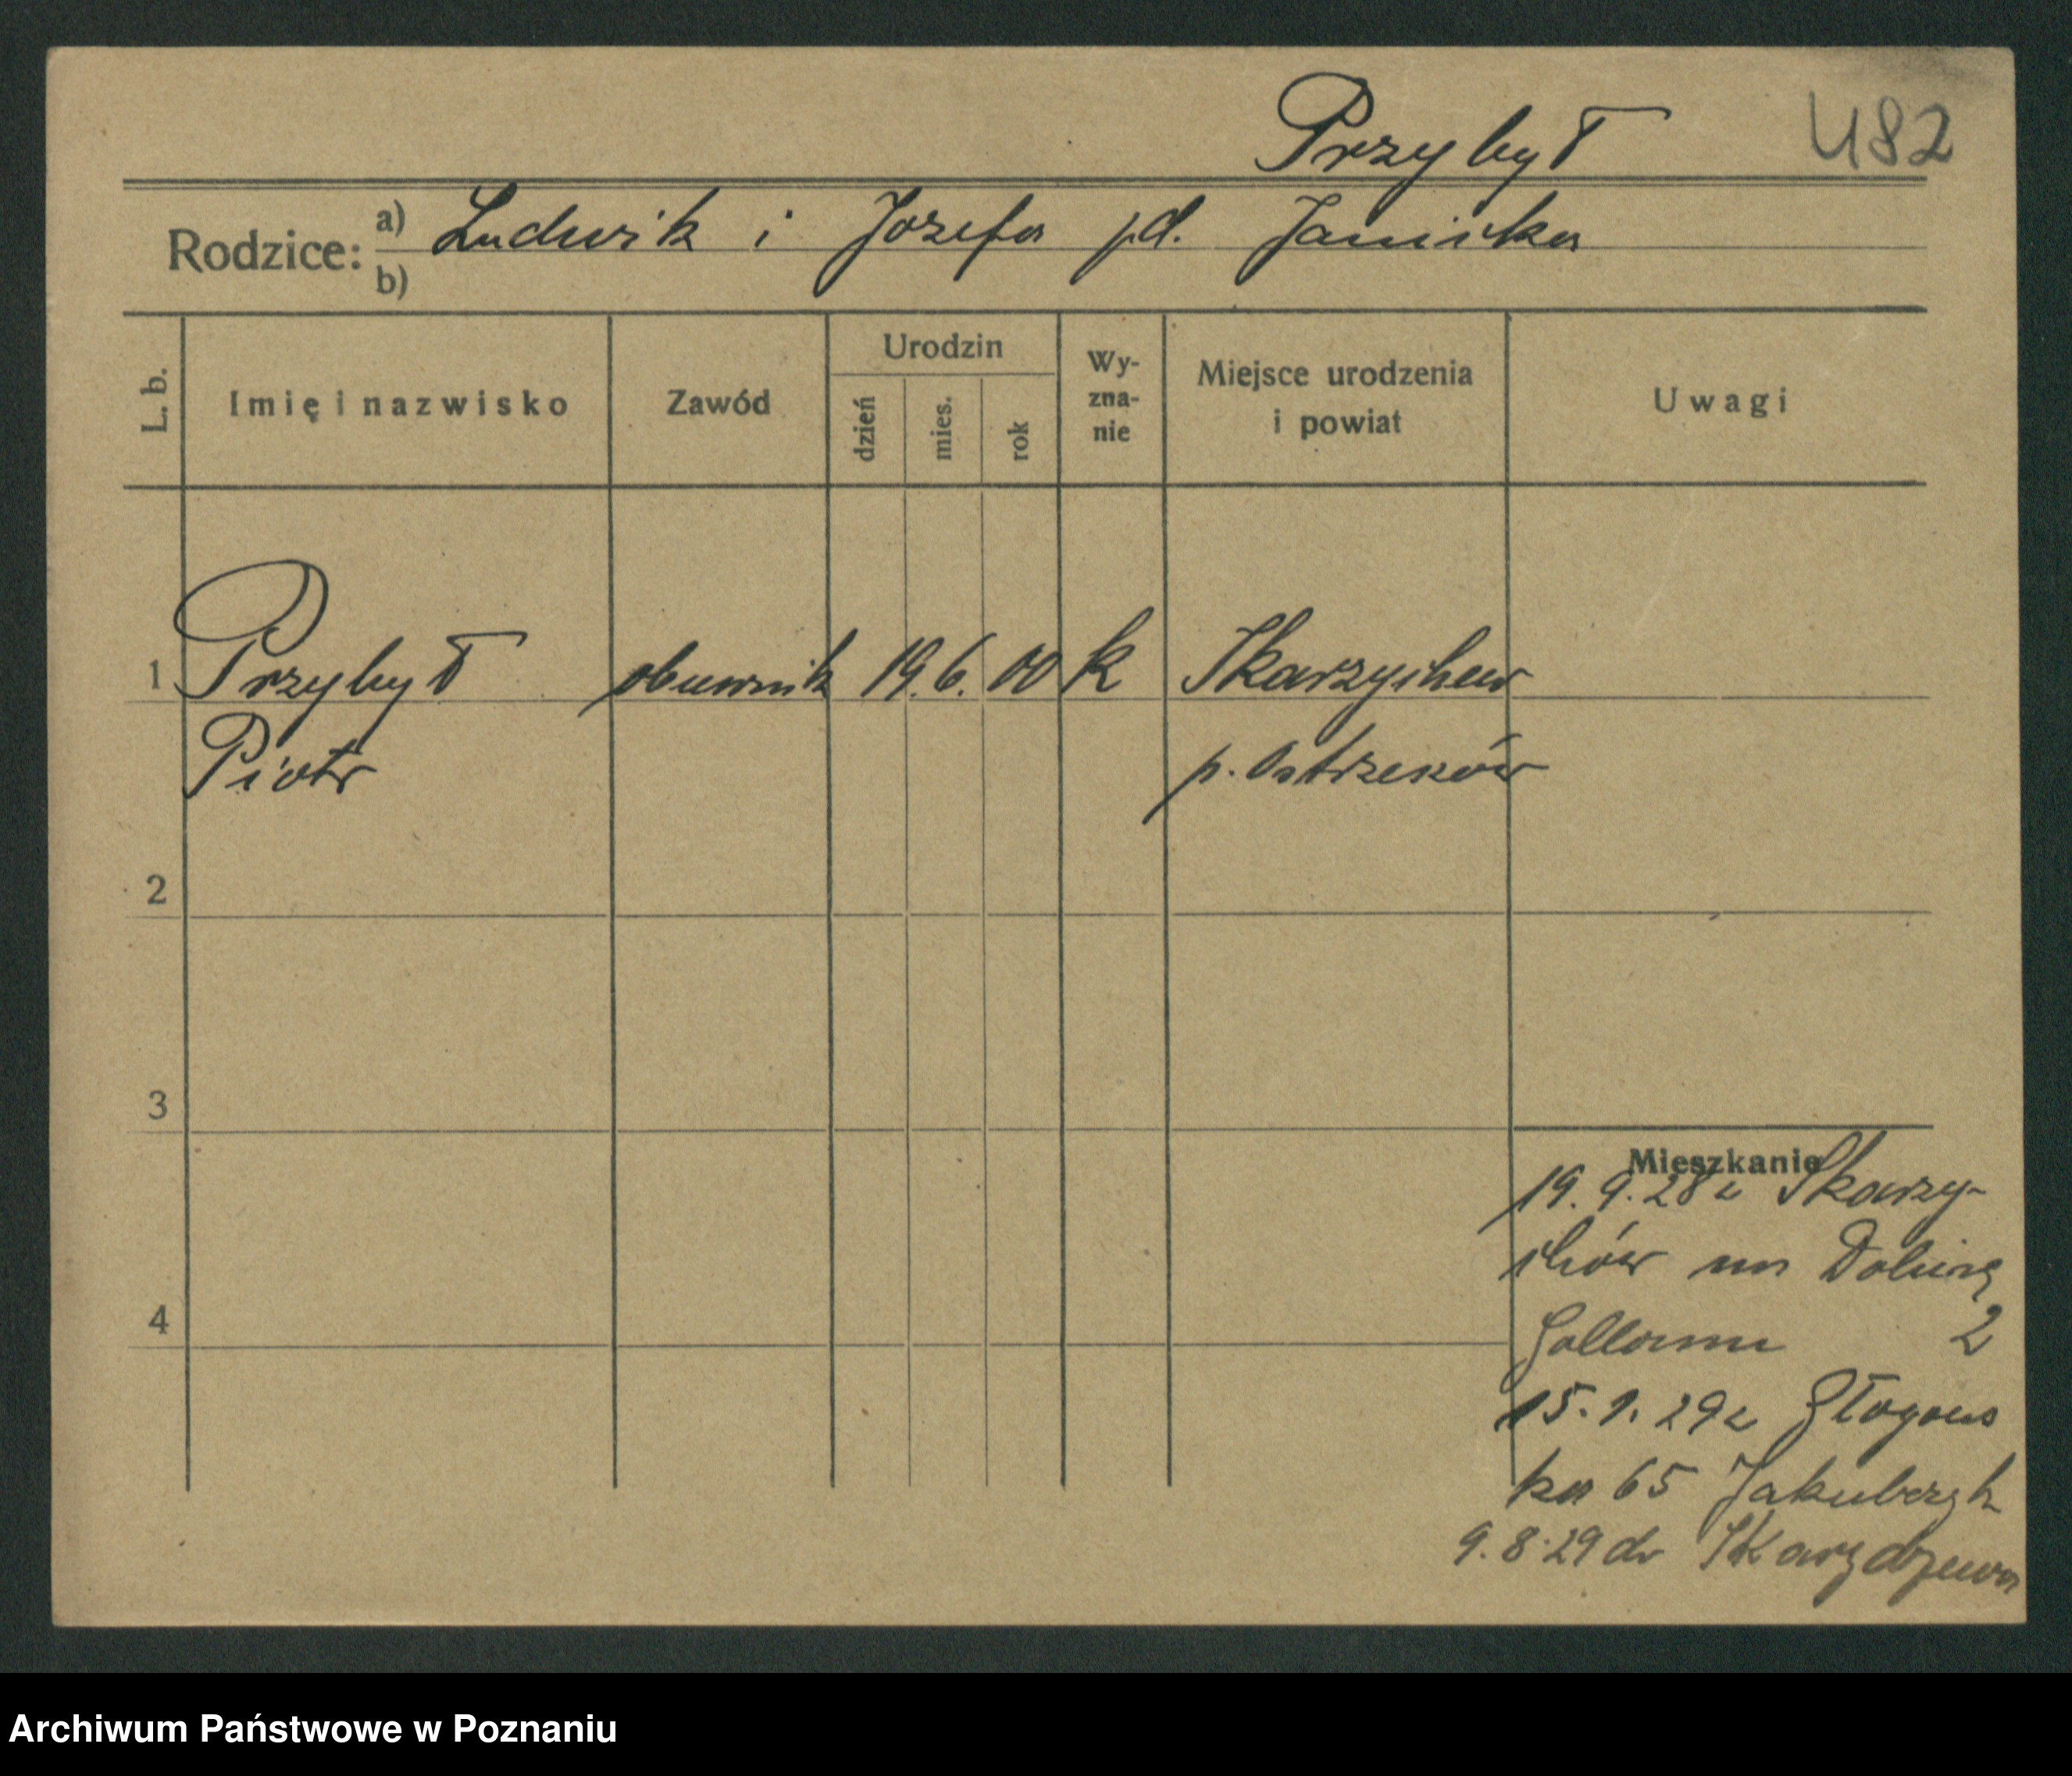 Przybył 482
Rodzice: a) Ludwik i Józefa pd. Janicka
b)
L. b. Imię i nazwisko Zawód Urodzin dzień mies. rok Wy-zna-nie Miejsce urodzenia i powiat Uwagi
1 Przybył obuwnik 19. 6. 00 k
Piotr p. Ostrzeszów
2
3
4
Mieszkanie
19. 9. 28 z Skarzy-
na Dolinę
2
15. 1. 29 z Głogows
ka 65 Jakubczyk
9. 8. 29 do
Archiwum Państwowe w Poznaniu